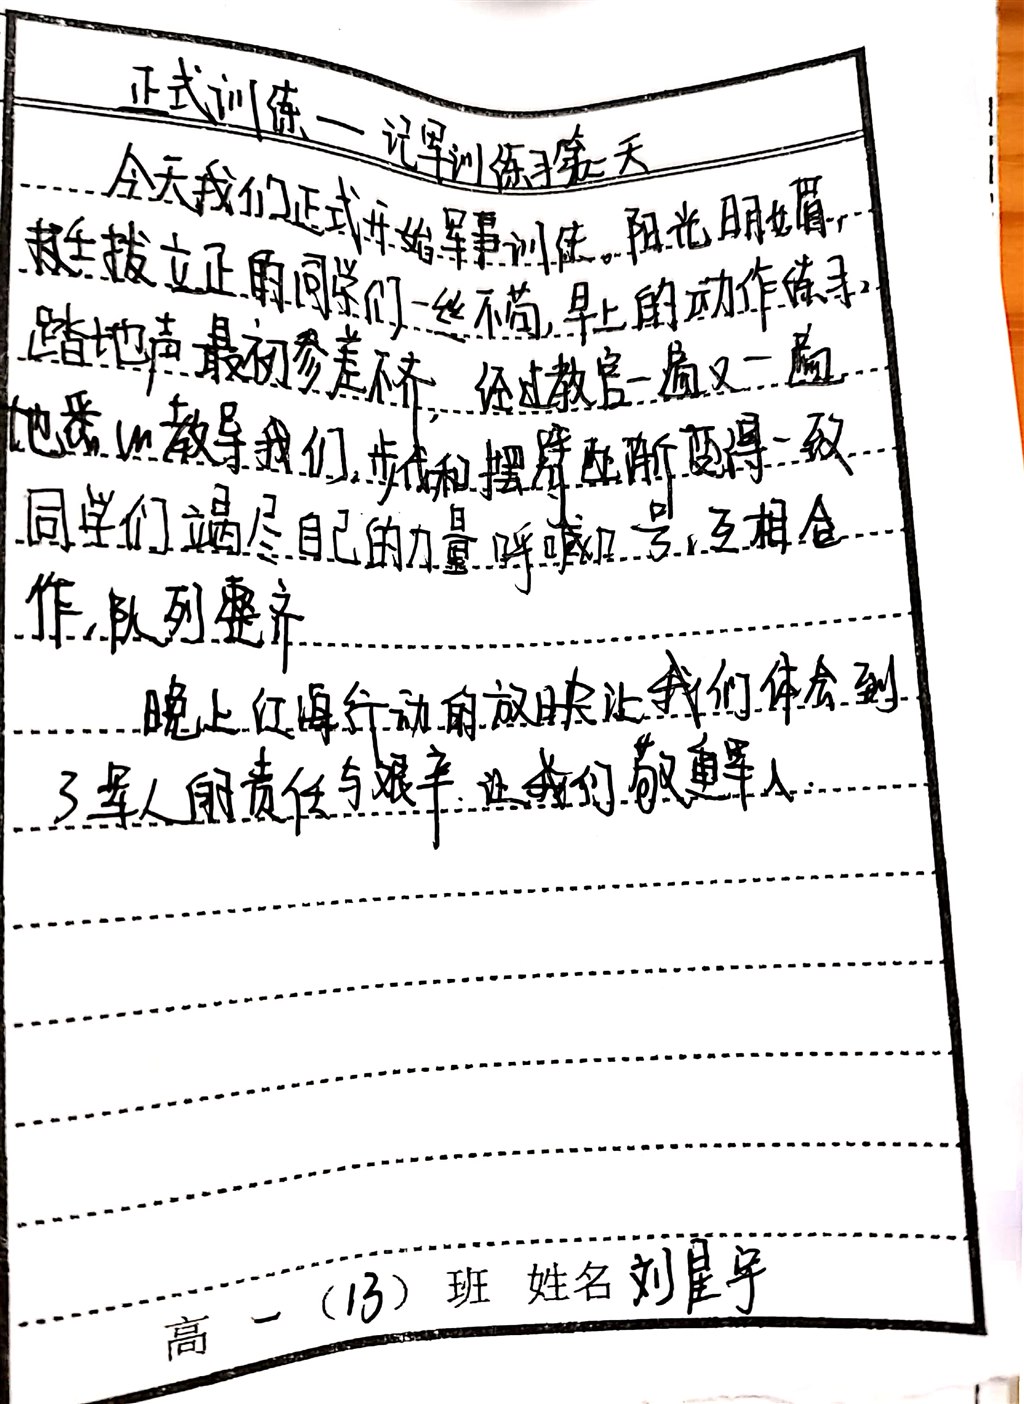 正式训练一记军训练习第二天
今天我们正式开始军事训练。阳光明媚,
挺拔立正的同学们一丝不苟,早上的动作练习,
踏地声最初参差不齐,经过教官一遍又一遍
地悉心教导我们,步伐和摆臂逐渐变得一致
同学们竭尽自己的力量呼喊口号,互相合
作,队列整齐
晚上红海行动的放映让我们体会到
了军人的责任与艰辛.让我们敬重军人.
高一(13)班 姓名刘星宇